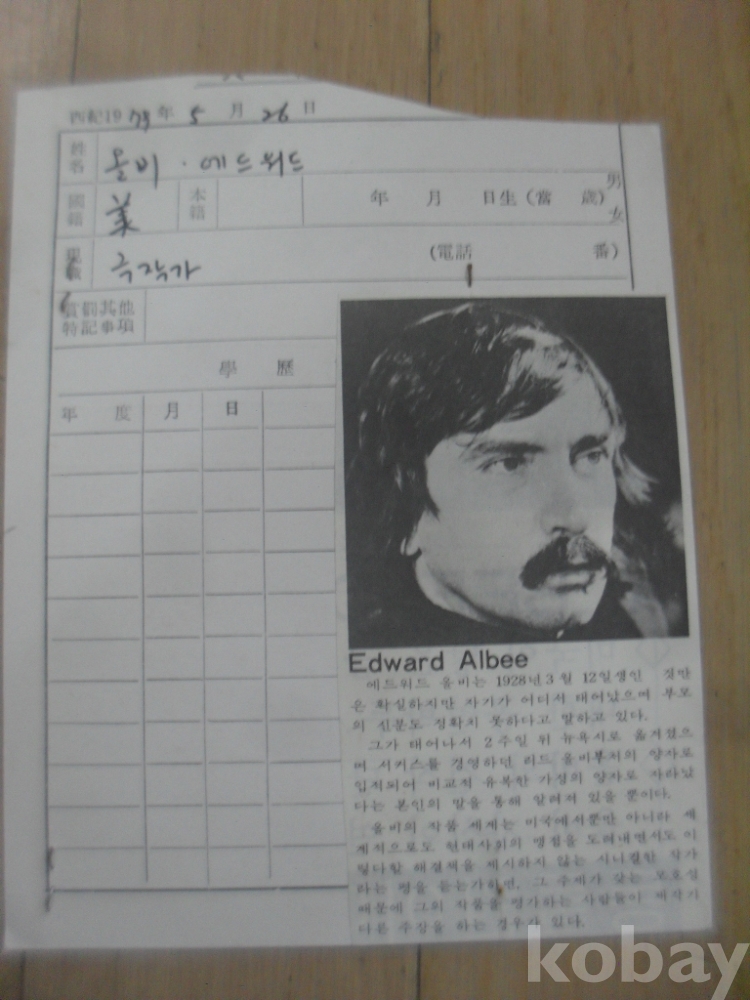 西紀19 73 年 5 月 26 日
姓名 올비 · 에드워드
國籍 美 本籍 年 月 日生 (當 歲) 男 女
現職 극작가 (電話 番)
賞罰其他
特記事項
學 歷
年 度 月 日
Edward Albee
에드워드 올비는 1928년 3월 12일생인 것만
은 확실하지만 자기가 어디서 태어났으며 부모
의 신분도 정확치 못하다고 말하고 있다.
그가 태어나서 2주일 뒤 뉴욕시로 옮겨졌으
며 서커스를 경영하던 리드 올비부처의 양자로
입적되어 비교적 유복한 가정의 양자로 자라났
다는 본인의 말을 통해 알려져 있을 뿐이다.
올비의 작품 세계는 미국에서뿐만 아니라 세
계적으로도 현대사회의 맹점을 도려내면서도 이
렇다할 해결책을 제시하지 않는 시니컬한 작가
라는 평을 듣는가하면, 그 주제가 갖는 모호성
때문에 그의 작품을 평가하는 사람들이 제각기
다른 주장을 하는 경우가 있다.
kobay